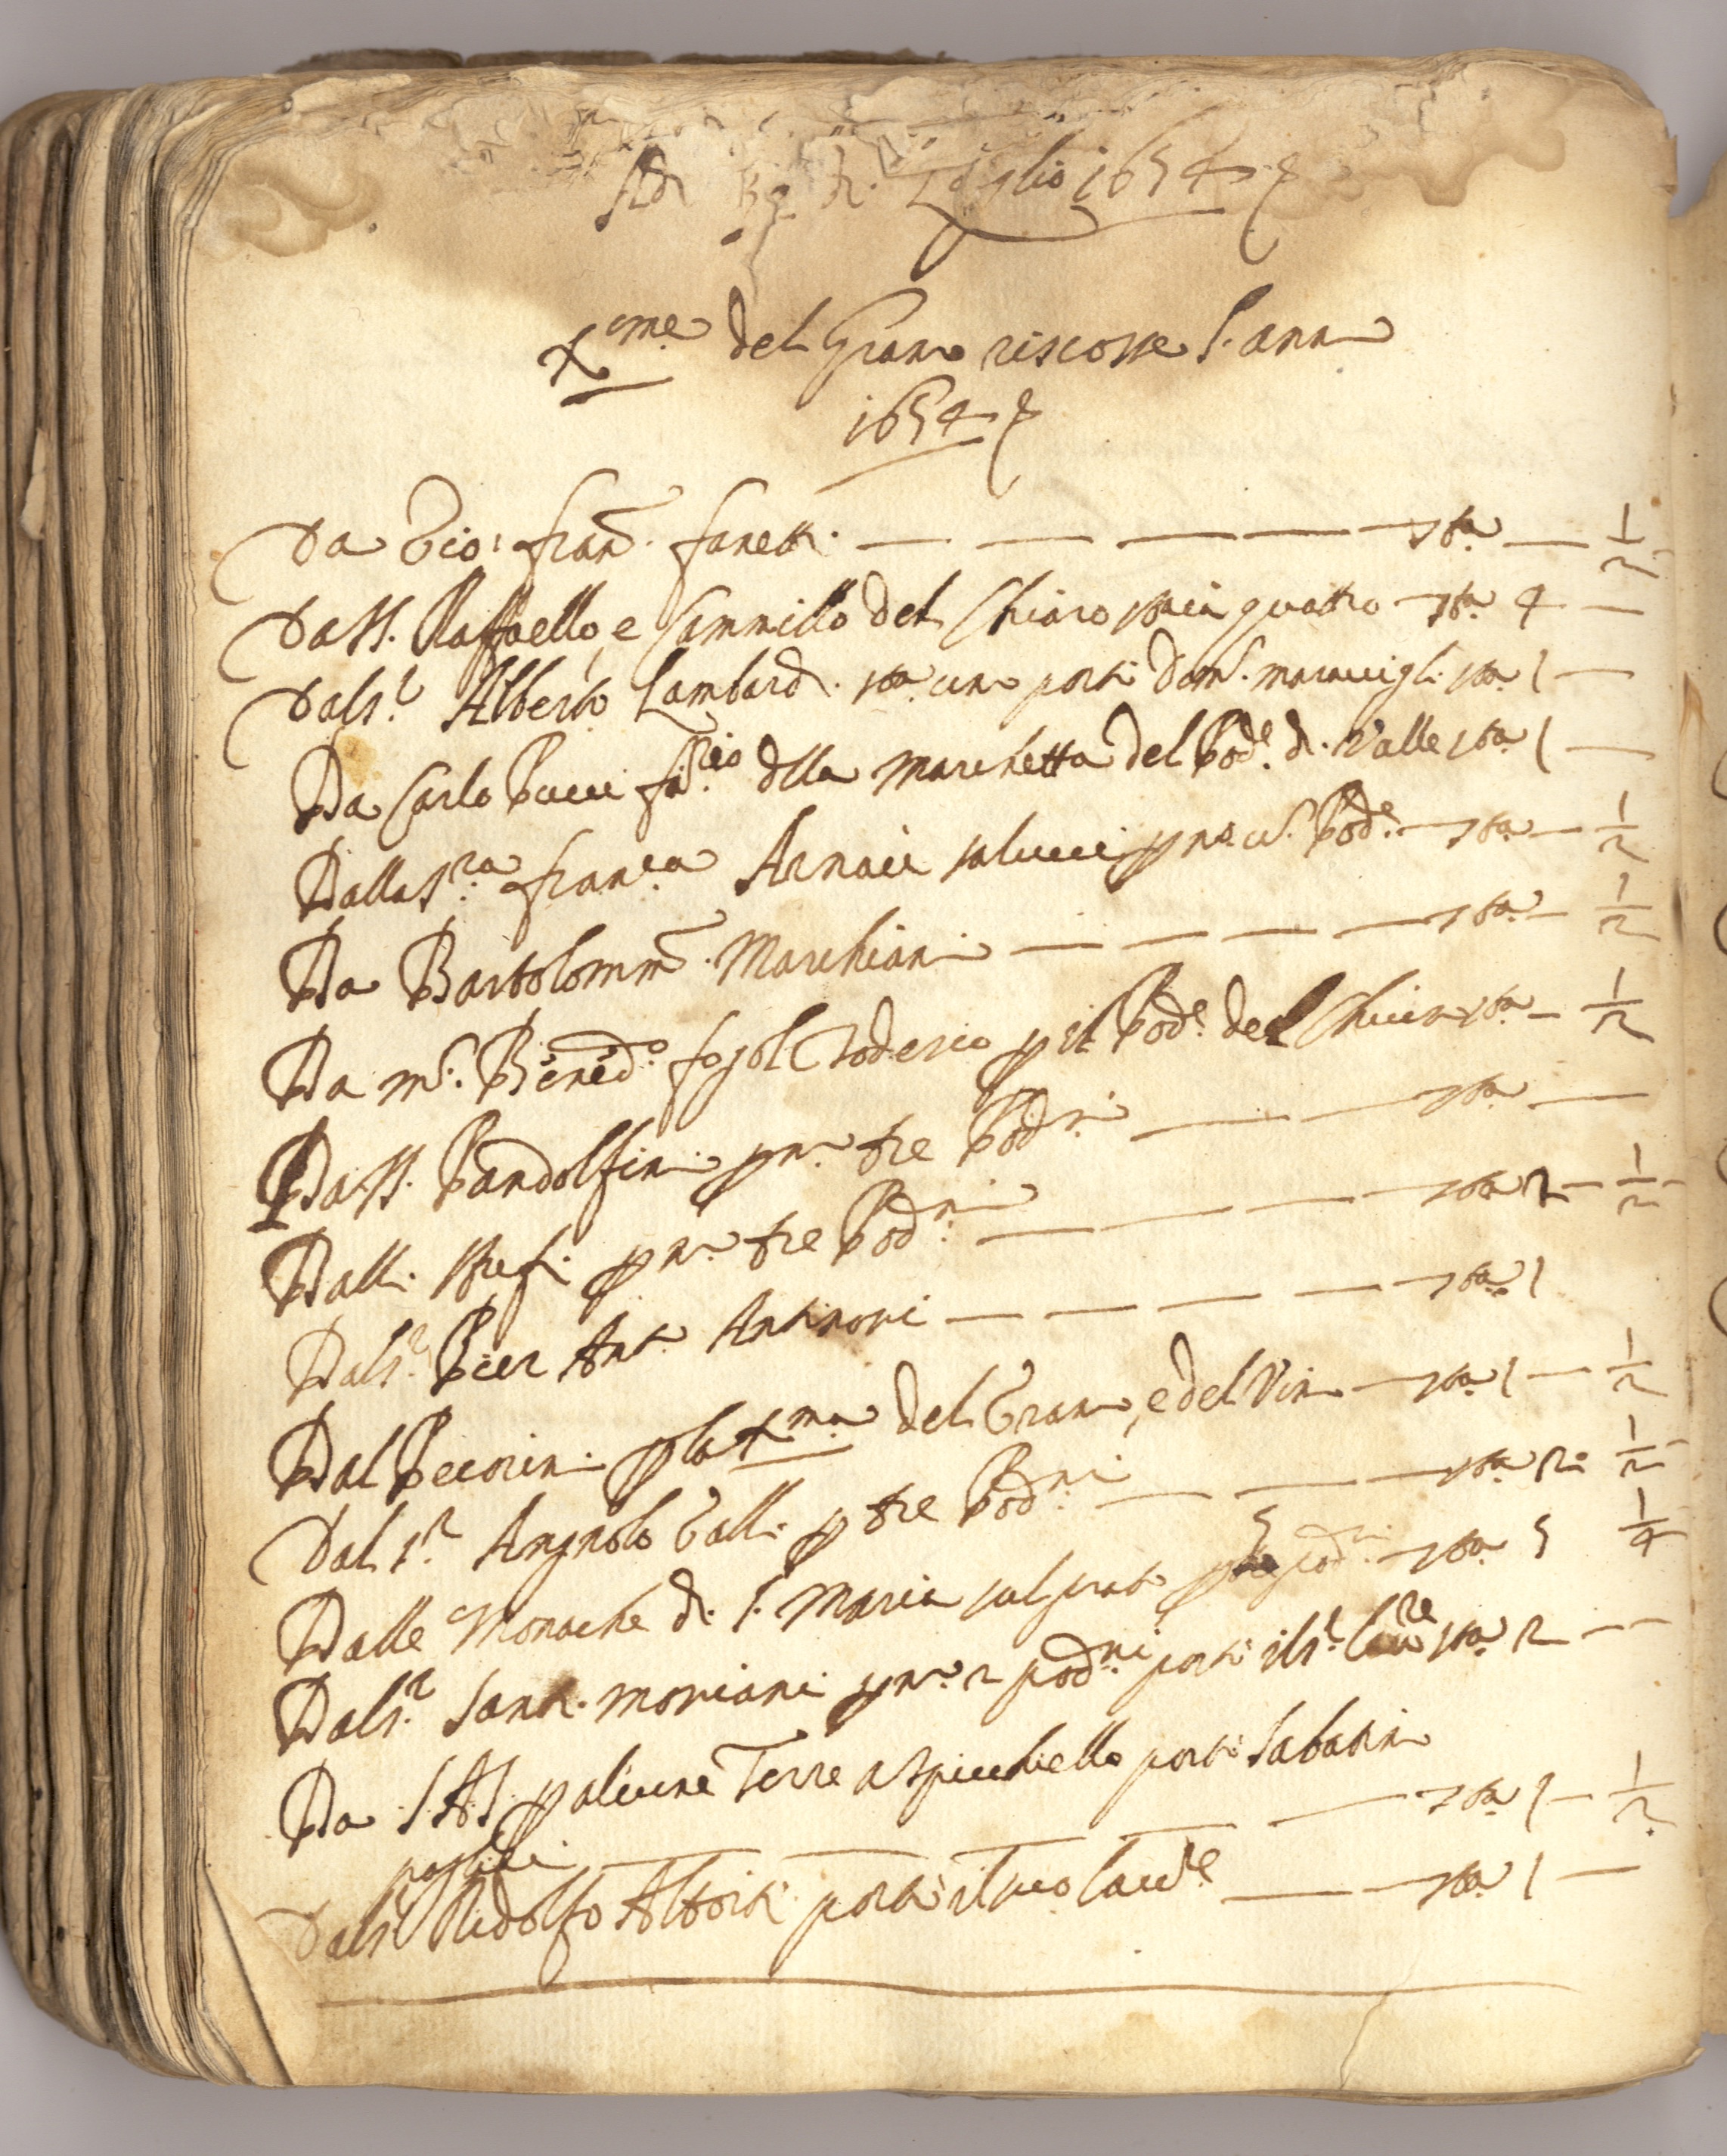 Adi di Luglio 1654
Xme del Grano riscosse l'anno
1654
Da Gio: Fran. Fanetti. sta. 1/2
Da SS. Raffaello, e Cammillo del Chiaro staia quattro sta. 4
Dal S.r Alberto Lombardi. sta. uno portò Dom. maravigli. sta. 1
Da Carlo Pucci della Marchetta del Pod.e di Valle sta. 1
Dalla S.ra Fran.ca Pod.e sta. 1/2
Da Bartolomm. Marchiani sta. 1/2
Da m. Bened.o p il Pod.e del sta. 1/2
Da SS. Pandolfini p n.o tre Pod.ri sta.
Dalli p n.o tre Pod.ri sta. 2 1/2
Dal S.r Pier Ant.o Antinori sta. 1
Dal Pecorini p la Xma del Grano, e del Vino sta. 1 1/2
Dal S.r Angnolo Galli p tre Pod.ri sta. 2 1/2
Dalle Monache di S. Maria sul prato p 5 pod.ri sta. 5 1/4
Dal S.r Santi Moriani p n.o 2 pod.ri portò il S.r sta. 2
Da S.A.S. p alcune Terre a Spicchiello portò Sabatino
sta. 1 1/2
Dal S.r Ridolfo Altoiti portò il suo Lav.re sta. 1